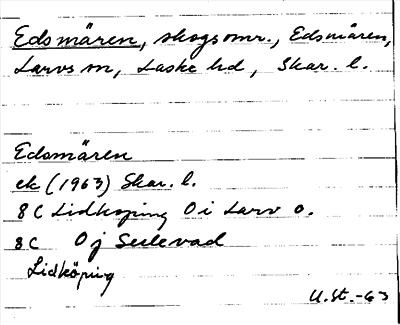 Edsmären, skogsomr., Edsmären,
Larvs sn, Laske hd, Skar. l.
Edsmären
ek (1963) Skar. l.
8C Lidköping 0 i Larv o.
8C 0 j Sulevad
Lidköping
U.St.-63